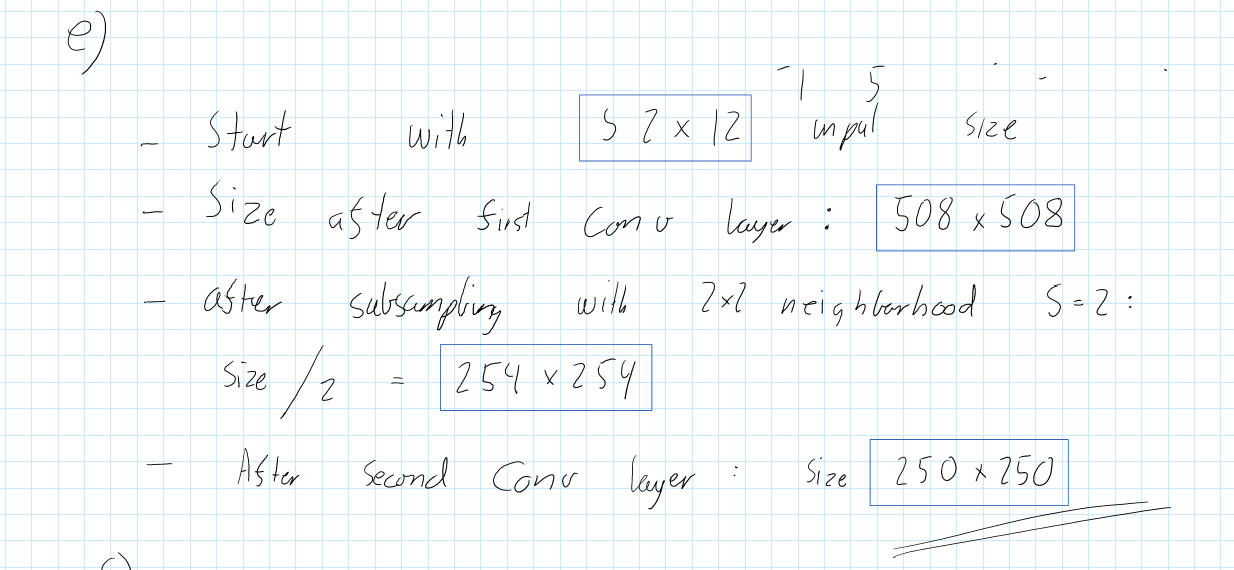 e)
1 5
- Start with 5 2 x 12 input size
- Size after first Conv layer : 508 x 508
- after subsampling with 2x2 neighborhood S = 2 :
size / 2 = 254 x 254
- After second Conv layer : size 250 x 250